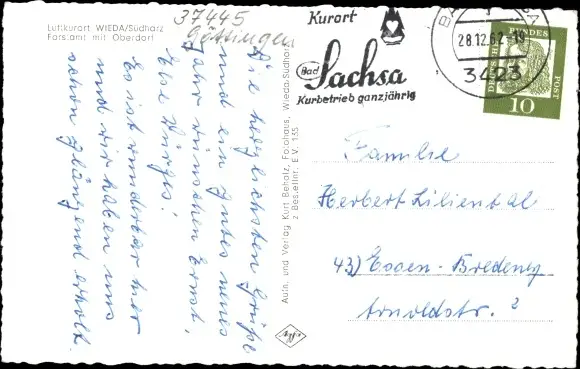 Luftkurort WIEDA/Südharz
Forstamt mit Oberdorf
37445
Göttingen
Die herzlichsten Grüße
und ein gutes neues
Jahr wünschen Ernst,
Else Jürges!
Es ist wunderbar hier
und wir haben uns
schon glänzend erholt.
Aufn. und Verlag Kurt Beholz, Fotohaus, Wieda-Südharz
z Bestellnr. E.V. 135
Agfa
Kurort
Bad Sachsa
Kurbetrieb ganzjährig
28.12.62
3423
DEUTSCHE BUNDESPOST
10
Familie
Herbert Lilienthal
43) Essen-Bredeney
Arnoldstr. 2